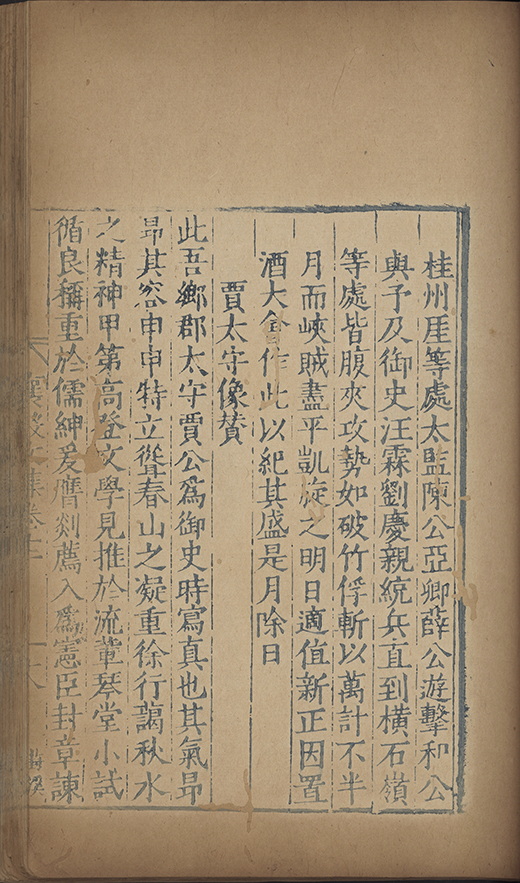 桂州厓等處太監陳公亞卿薛公游擊和公
與予及御史汪霖劉慶親統兵直到橫石嶺
等處皆腹夾攻勢如破竹俘斬以萬計不半
月而峽賊盡平凱旋之明日適值新正因置
酒大會作此以紀其盛是月除日
賈太守像贊
此吾鄉郡太守賈公爲御史時寫真也其氣昻
昻其容申申特立聳春山之凝重徐行藹秋水
之精神甲第高登文學見推於流輩琴堂小試
循良稱重於儒紳爰膺剡薦入爲憲臣封章諫
襄毅文集卷十